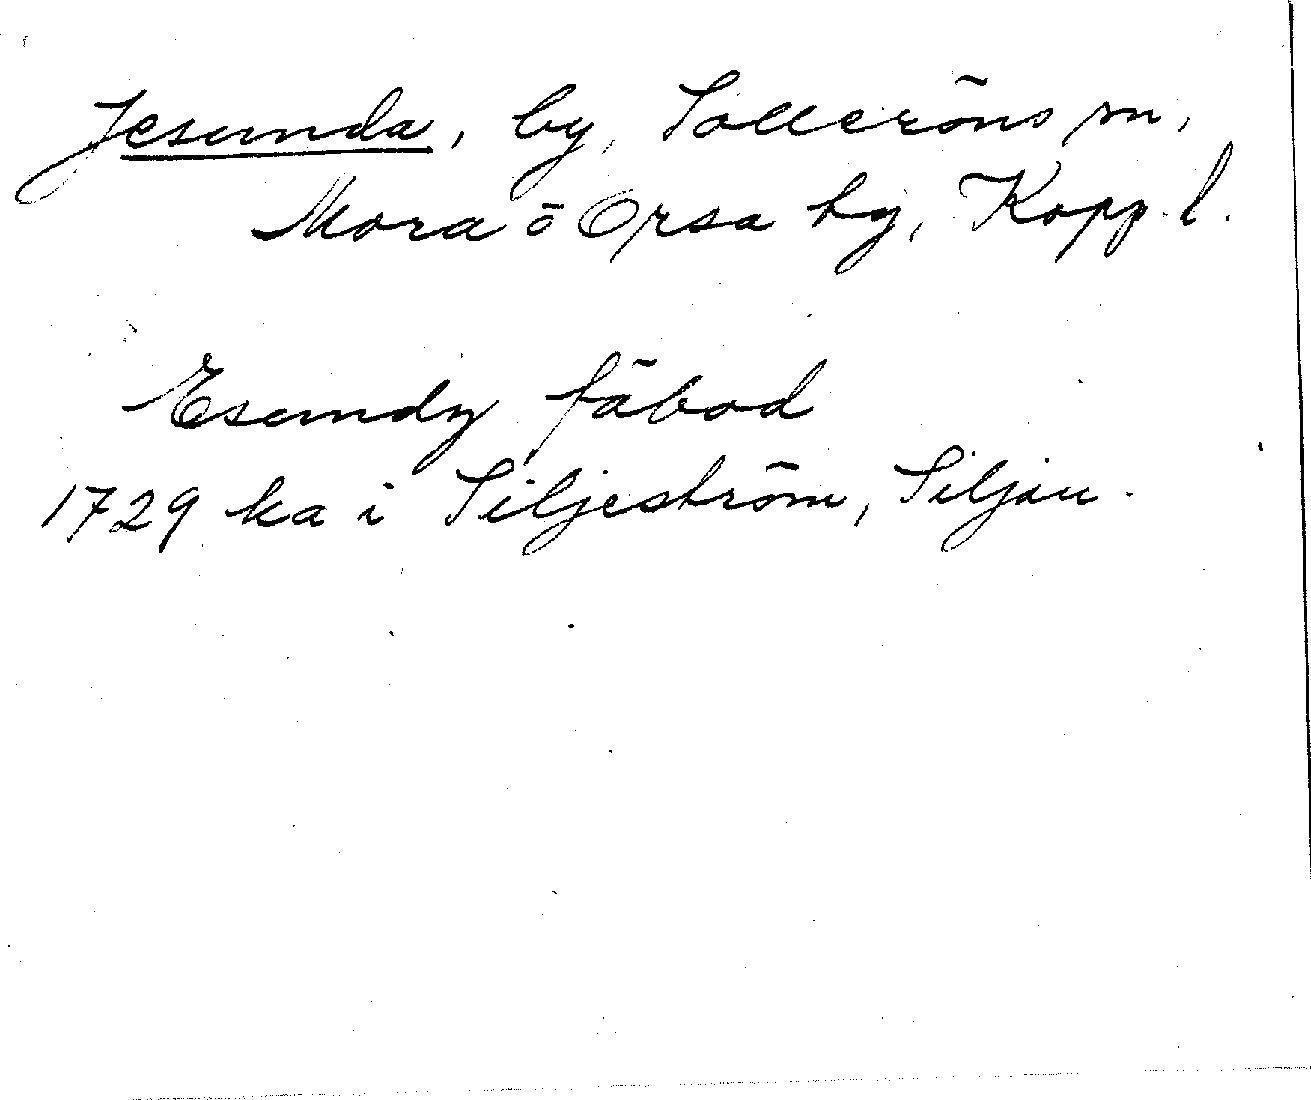 Jesunda, by, Solleröns sn,
Mora o Orsa hg, Kopp. l.
Esundy fäbod
1729 ka i Siljeström, Siljan.